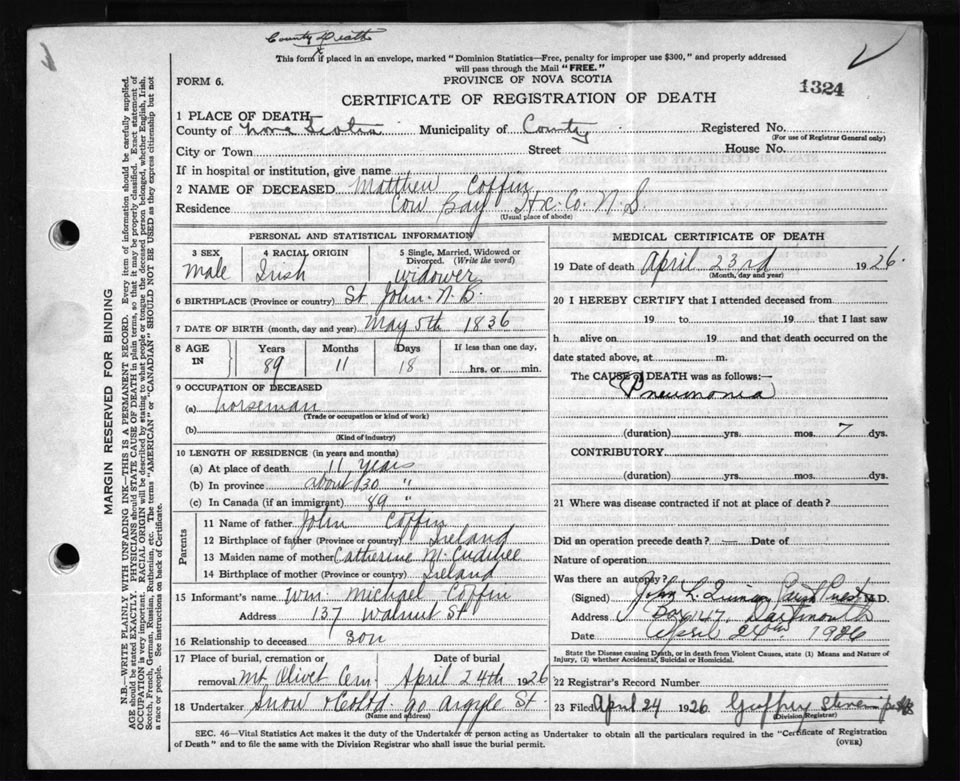 County Death
This form if placed in an envelope, marked "Dominion Statistics—Free, penalty for improper use $300," and properly addressed
will pass through the Mail "FREE."
FORM 6.
PROVINCE OF NOVA SCOTIA
1324
CERTIFICATE OF REGISTRATION OF DEATH
1 PLACE OF DEATH
County of Nova Scotia Municipality of County Registered No.
(For use of Registrar General only)
City or Town Street House No.
If in hospital or institution, give name
2 NAME OF DECEASED Matthew Coffin
Residence Cow Bay Hx. Co. N.S.
(Usual place of abode)
PERSONAL AND STATISTICAL INFORMATION
3 SEX 4 RACIAL ORIGIN 5 Single, Married, Widowed or
Divorced. (Write the word)
Male Irish widower
6 BIRTHPLACE (Province or country) St. John. N.B.
7 DATE OF BIRTH (month, day and year) May 5th 1836
8 AGE IN Years Months Days If less than one day,
89 11 18 hrs. or min.
9 OCCUPATION OF DECEASED
(a) horseman
(Trade or occupation or kind of work)
(b)
(Kind of industry)
10 LENGTH OF RESIDENCE (in years and months)
(a) At place of death 11 years
(b) In province about 30 "
(c) In Canada (if an immigrant) 89 "
Parents
11 Name of father John Coffin
12 Birthplace of father (Province or country) Ireland
13 Maiden name of mother Catherine
14 Birthplace of mother (Province or country) Ireland
15 Informant's name Wm. Michael Coffin
Address 137 Walnut St.
16 Relationship to deceased son
17 Place of burial, cremation or Date of burial
removal Mt Olivet Cem April 24th 1926
18 Undertaker Snow & Co Ltd 90 Argyle St.
(Name and address)
MEDICAL CERTIFICATE OF DEATH
19 Date of death April 23rd 1926.
(Month, day and year)
20 I HEREBY CERTIFY that I attended deceased from
19 to 19 that I last saw
h alive on 19 and that death occurred on the
date stated above, at m.
The CAUSE OF DEATH was as follows:—
Pneumonia
(duration) yrs. mos. 7 dys.
CONTRIBUTORY
(duration) yrs. mos. dys.
21 Where was disease contracted if not at place of death?
Did an operation precede death? — Date of
Nature of operation
Was there an autopsy?
(Signed) John L. Quinan Parish Priest M.D.
Address Box 147, Dartmouth
Date April 24th 1926
State the Disease causing Death, or in death from Violent Causes, state (1) Means and Nature of
Injury, (2) whether Accidental, Suicidal or Homicidal.
22 Registrar's Record Number
23 Filed April 24 1926
(Division Registrar)
SEC. 46—Vital Statistics Act makes it the duty of the Undertaker or person acting as Undertaker to obtain all the particulars required in the "Certificate of Registration
of Death" and to file the same with the Division Registrar who shall issue the burial permit.
(OVER)
MARGIN RESERVED FOR BINDING
N.B.—WRITE PLAINLY WITH UNFADING INK—THIS IS A PERMANENT RECORD. Every item of information should be carefully supplied.
AGE should be stated EXACTLY. PHYSICIANS should STATE CAUSE OF DEATH in plain terms, so that it may be properly classified. Exact statement of
OCCUPATION is very important. RACIAL ORIGIN will be described by stating to what people or tongue the deceased person belonged, whether English, Irish,
Scotch, French, German, Russian, Ruthenian, etc. The terms "AMERICAN" or "CANADIAN" SHOULD NOT BE USED as they express citizenship but not
a race or people. See instructions on back of Certificate.